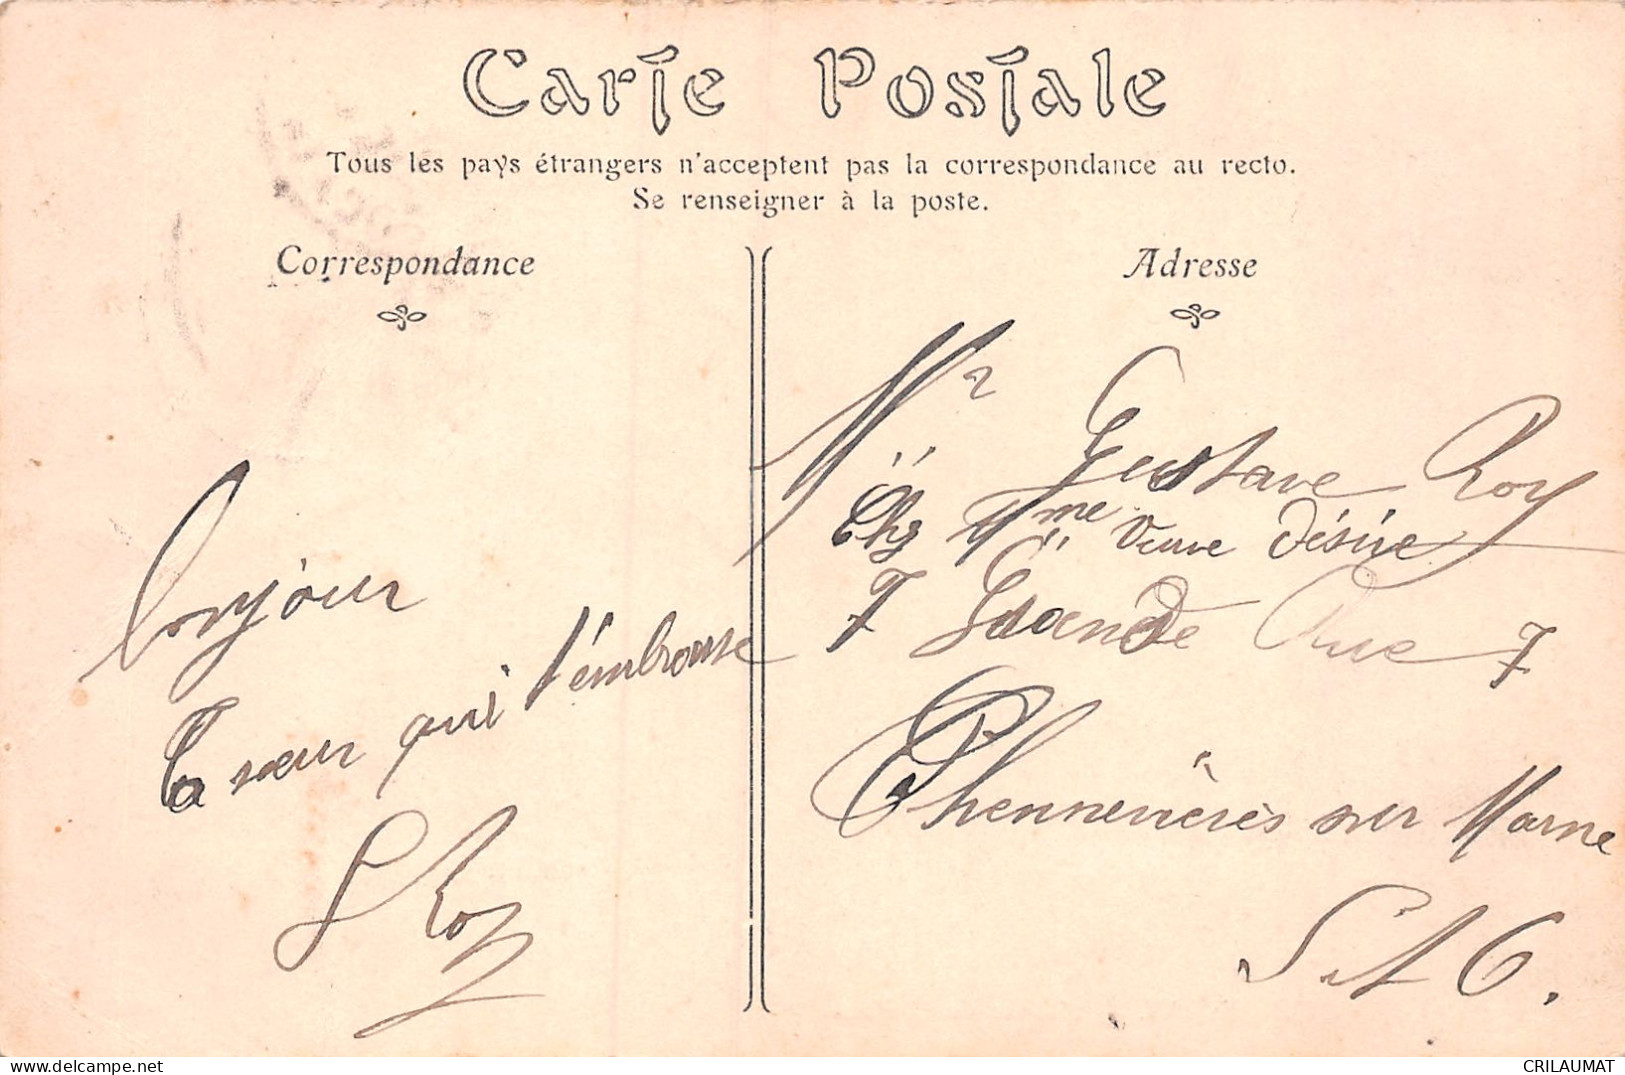 Carte Postale
Tous les pays étrangers n'acceptent pas la correspondance au recto.
Se renseigner à la poste.
Correspondance
Adresse
Bonjour
Ta sœur qui t'embrasse
Roy
Mr Gustave Roy
Chz Mme Veuve Désiré
7 Grande Rue 7
Chennevières sur Marne
S et O.
delcampe.net
CRILAUMAT